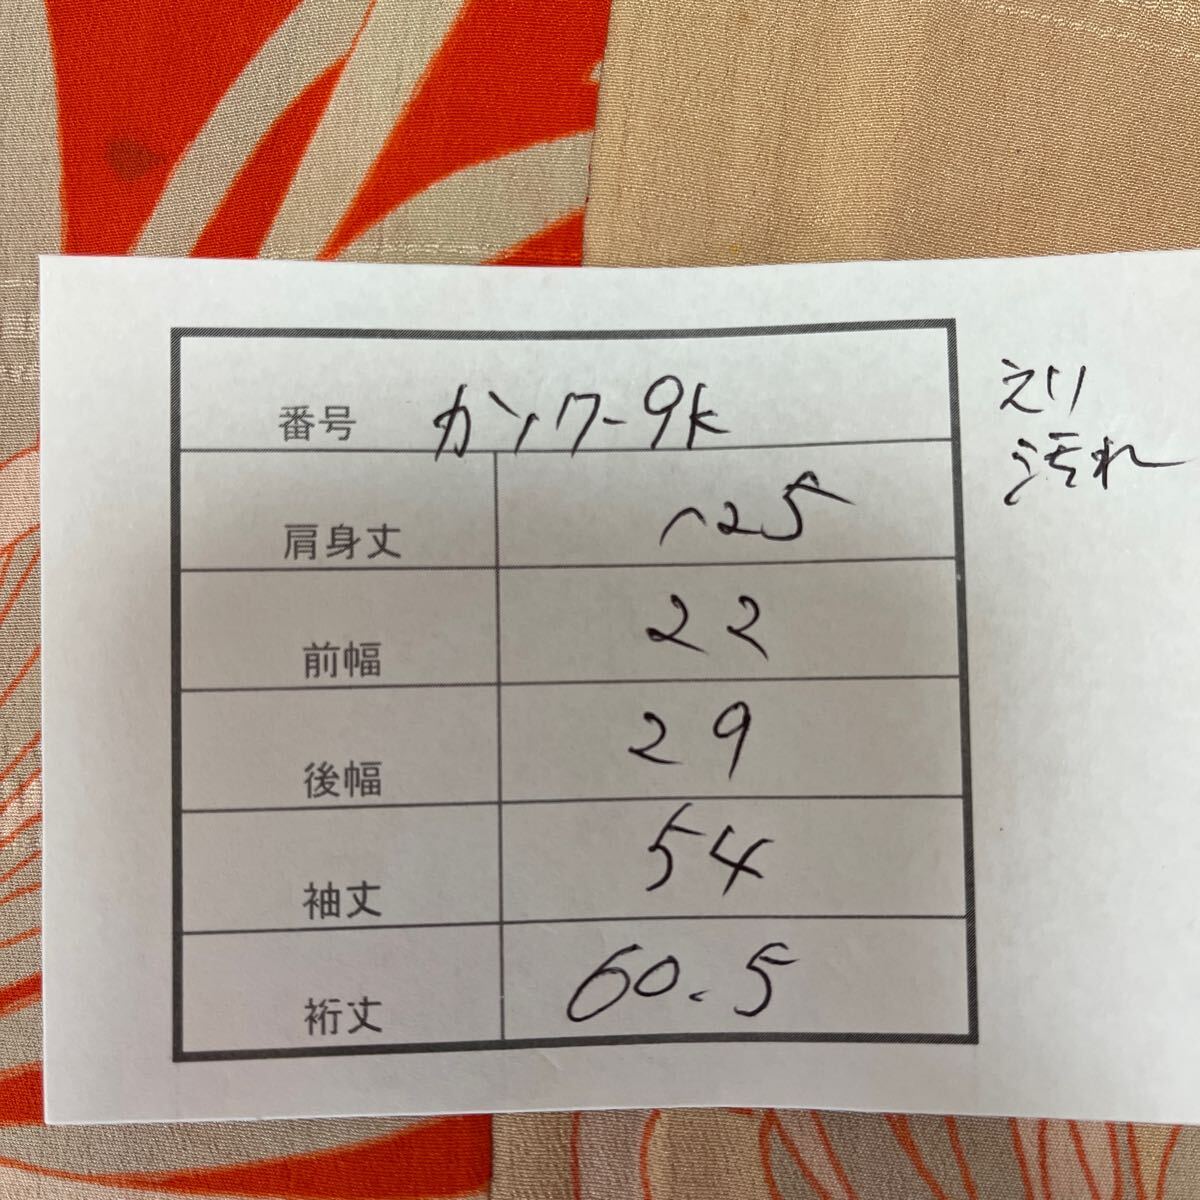 番号 カンワ-9K
肩身丈 125
前幅 22
後幅 29
袖丈 54
裄丈 60.5
えり
汚れ